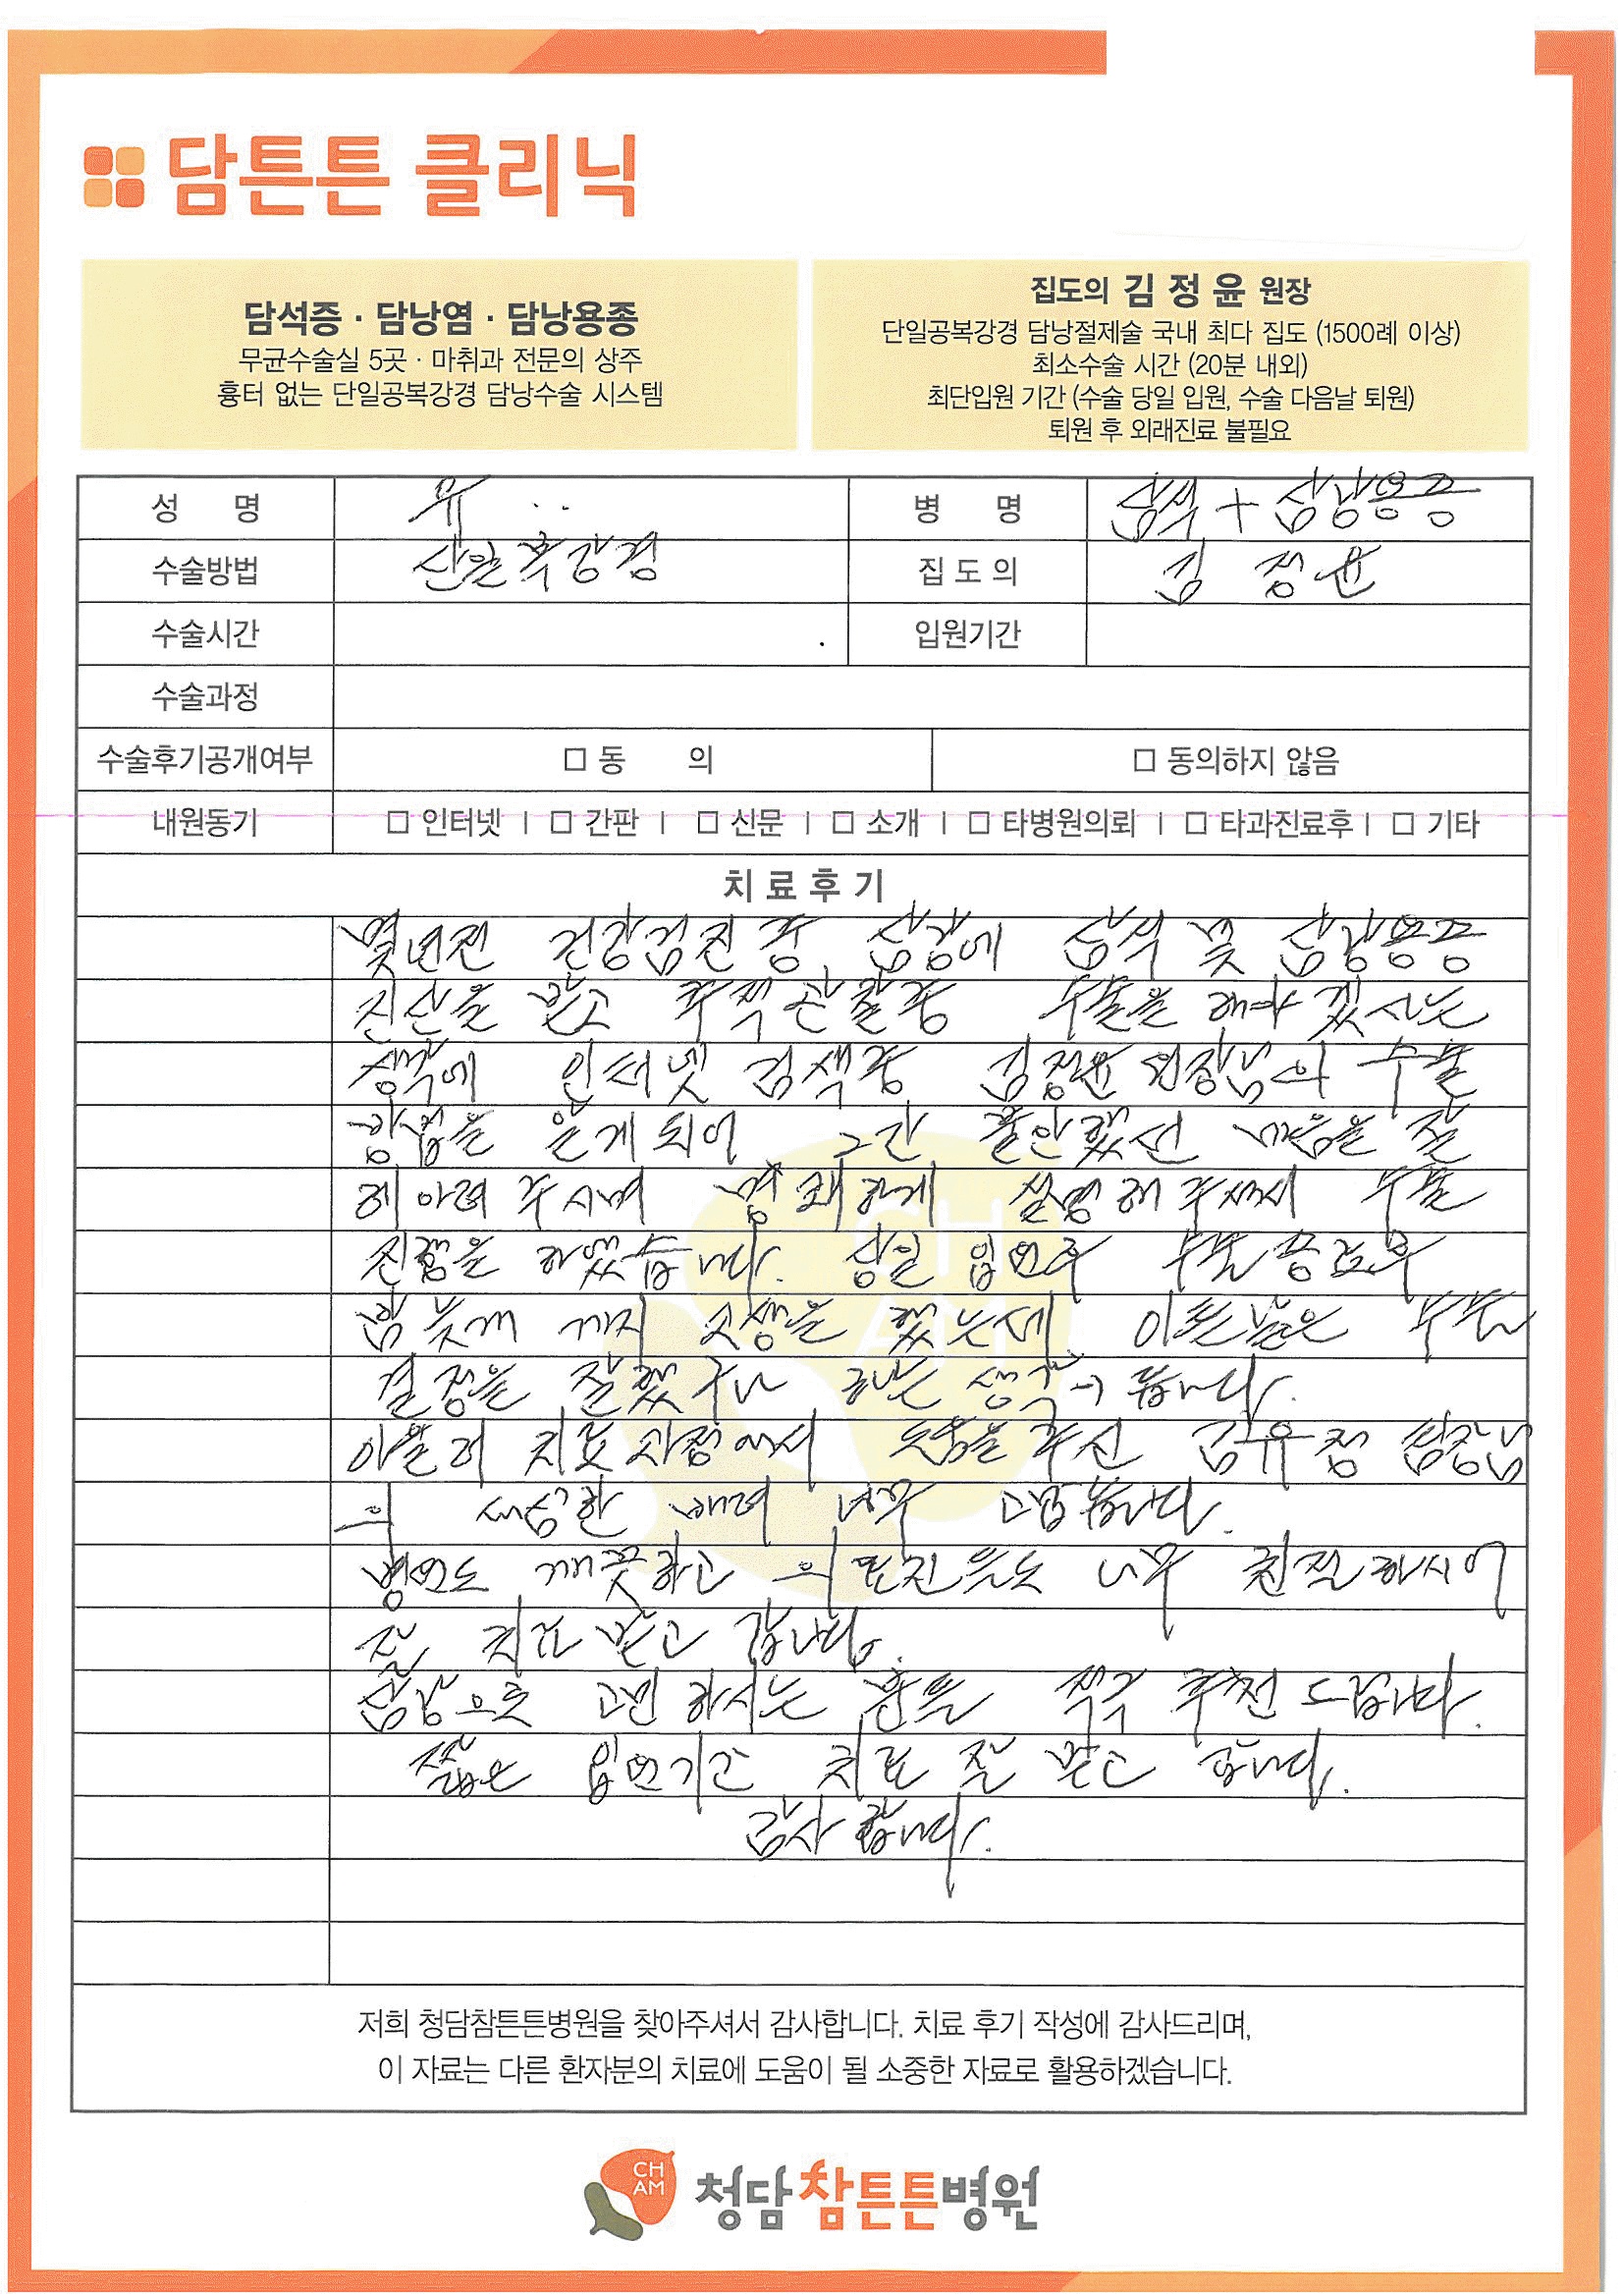 담튼튼 클리닉
담석증 · 담낭염 · 담낭용종
무균수술실 5곳 · 마취과 전문의 상주
흉터 없는 단일공복강경 담낭수술 시스템
집도의 김정윤 원장
단일공복강경 담낭절제술 국내 최다 집도 (1500례 이상)
최소수술 시간 (20분 내외)
최단입원 기간 (수술 당일 입원, 수술 다음날 퇴원)
퇴원 후 외래진료 불필요
성 명 유 병 명 담석 + 담낭용종
수술방법 단일복강경 집도의 김정윤
수술시간 입원기간
수술과정
수술후기공개여부 □ 동 의 □ 동의하지 않음
내원동기 □ 인터넷 | □ 간판 | □ 신문 | □ 소개 | □ 타병원의뢰 | □ 타과진료후 | □ 기타
치료후기
몇년전 건강검진중 담낭에 담석 및 담낭용종
진단을 받고 추적관찰중 수술을 해야겠다는
생각에 인터넷 검색중 김정윤 원장님의 수술
방법을 알게되어 그간 불안했던 마음을 잘
헤아려 주시며 명쾌하게 설명해주셔서 수술
진행을 하였습니다. 당일 입원후 수술종료후
밤 늦게 까지 고생을 했는데 이튿날은 수술
결정을 잘했구나 하는 생각이 듭니다.
아울러 치료과정에서 도움을 주신 김유정 팀장님
의 세심한 배려 너무 고맙습니다.
병원도 깨끗하고 의료진들도 너무 친절하시어
잘 치료받고 갑니다.
담낭으로 고민하시는 분들 적극 추천드립니다.
짧은 입원기간 치료 잘 받고 갑니다.
감사합니다.
저희 청담참튼튼병원을 찾아주셔서 감사합니다. 치료 후기 작성에 감사드리며,
이 자료는 다른 환자분의 치료에 도움이 될 소중한 자료로 활용하겠습니다.
CH
AM
청담참튼튼병원